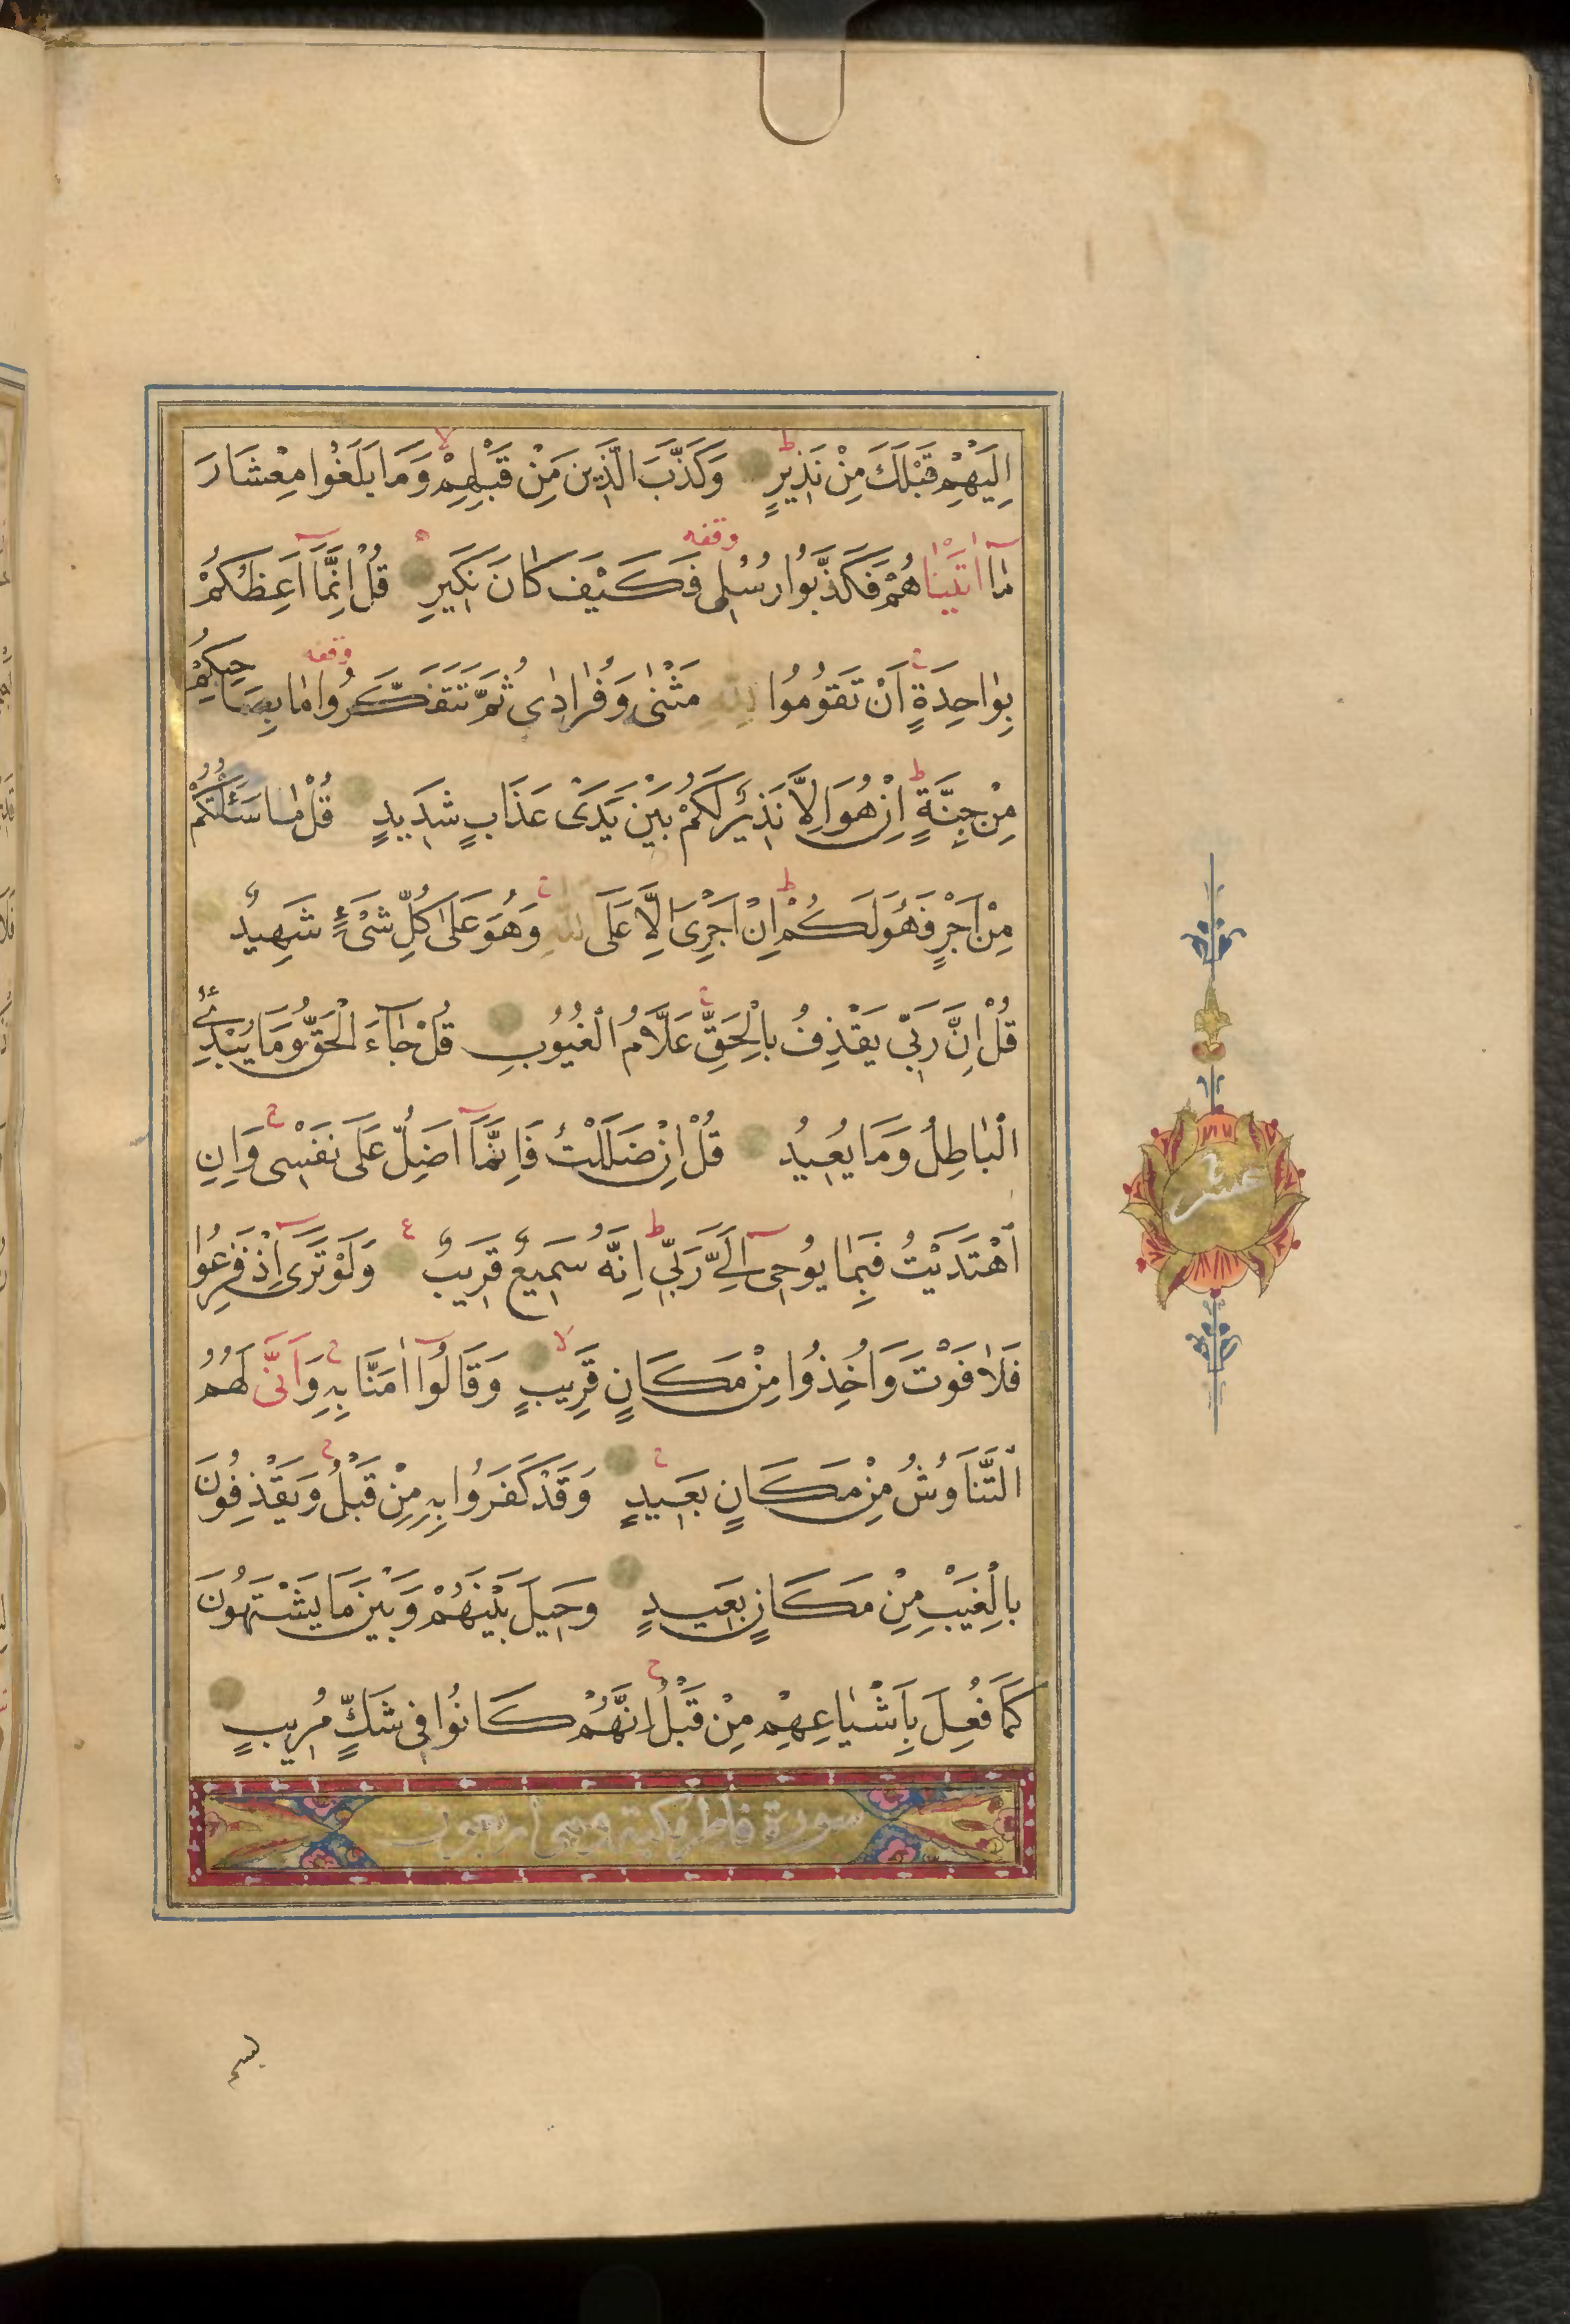 اِلَيْهِمْ قَبْلَكَ مِنْ نَذِيرٍ وَكَذَّبَ الَّذِينَ مِنْ قَبْلِهِمْ وَمَا بَلَغُوا مِعْشَارَ
مٰا اٰتَيْنٰاهُمْ فَكَذَّبُوا رُسُلِى فَكَيْفَ كَانَ نَكِيرِ قُلْ اِنَّمَا اَعِظُكُمْ
بِوٰاحِدَةٍ اَنْ تَقُومُوا لِلّٰهِ مَثْنٰى وَفُرٰادٰى ثُمَّ تَتَفَكَّرُوا مٰا بِصَاحِبِكُمْ
مِنْ جِنَّةٍ اِنْ هُوَ اِلَّا نَذِيرٌ لَكُمْ بَيْنَ يَدَىْ عَذَابٍ شَدِيدٍ قُلْ مٰا سَئَلْتُكُمْ
مِنْ اَجْرٍ فَهُوَ لَكُمْ اِنْ اَجْرِىَ اِلَّا عَلَى اللّٰهِ وَهُوَ عَلٰى كُلِّ شَىْءٍ شَهِيدٌ
قُلْ اِنَّ رَبِّى يَقْذِفُ بِالْحَقِّ عَلَّامُ الْغُيُوبِ قُلْ جٰاءَ الْحَقُّ وَمَا يُبْدِئُ
الْبٰاطِلُ وَمَا يُعِيدُ قُلْ اِنْ ضَلَلْتُ فَاِنَّمَا اَضِلُّ عَلَى نَفْسِى وَاِنِ
اهْتَدَيْتُ فَبِمٰا يُوحِى اِلَىَّ رَبِّى اِنَّهُ سَمِيعٌ قَرِيبٌ وَلَوْ تَرَى اِذْ فَزِعُوا
فَلٰا فَوْتَ وَاُخِذُوا مِنْ مَكَانٍ قَرِيبٍ وَقَالُوا اٰمَنَّا بِهِ وَاَنَّى لَهُمُ
التَّنَاوُشُ مِنْ مَكَانٍ بَعِيدٍ وَقَدْ كَفَرُوا بِهِ مِنْ قَبْلُ وَيَقْذِفُونَ
بِالْغَيْبِ مِنْ مَكَانٍ بَعِيدٍ وَحِيلَ بَيْنَهُمْ وَبَيْنَ مَا يَشْتَهُونَ
كَمَا فُعِلَ بِاَشْيٰاعِهِمْ مِنْ قَبْلُ اِنَّهُمْ كَانُوا فِى شَكٍّ مُرِيبٍ
سورة فاطر مكية
عشر
بسم